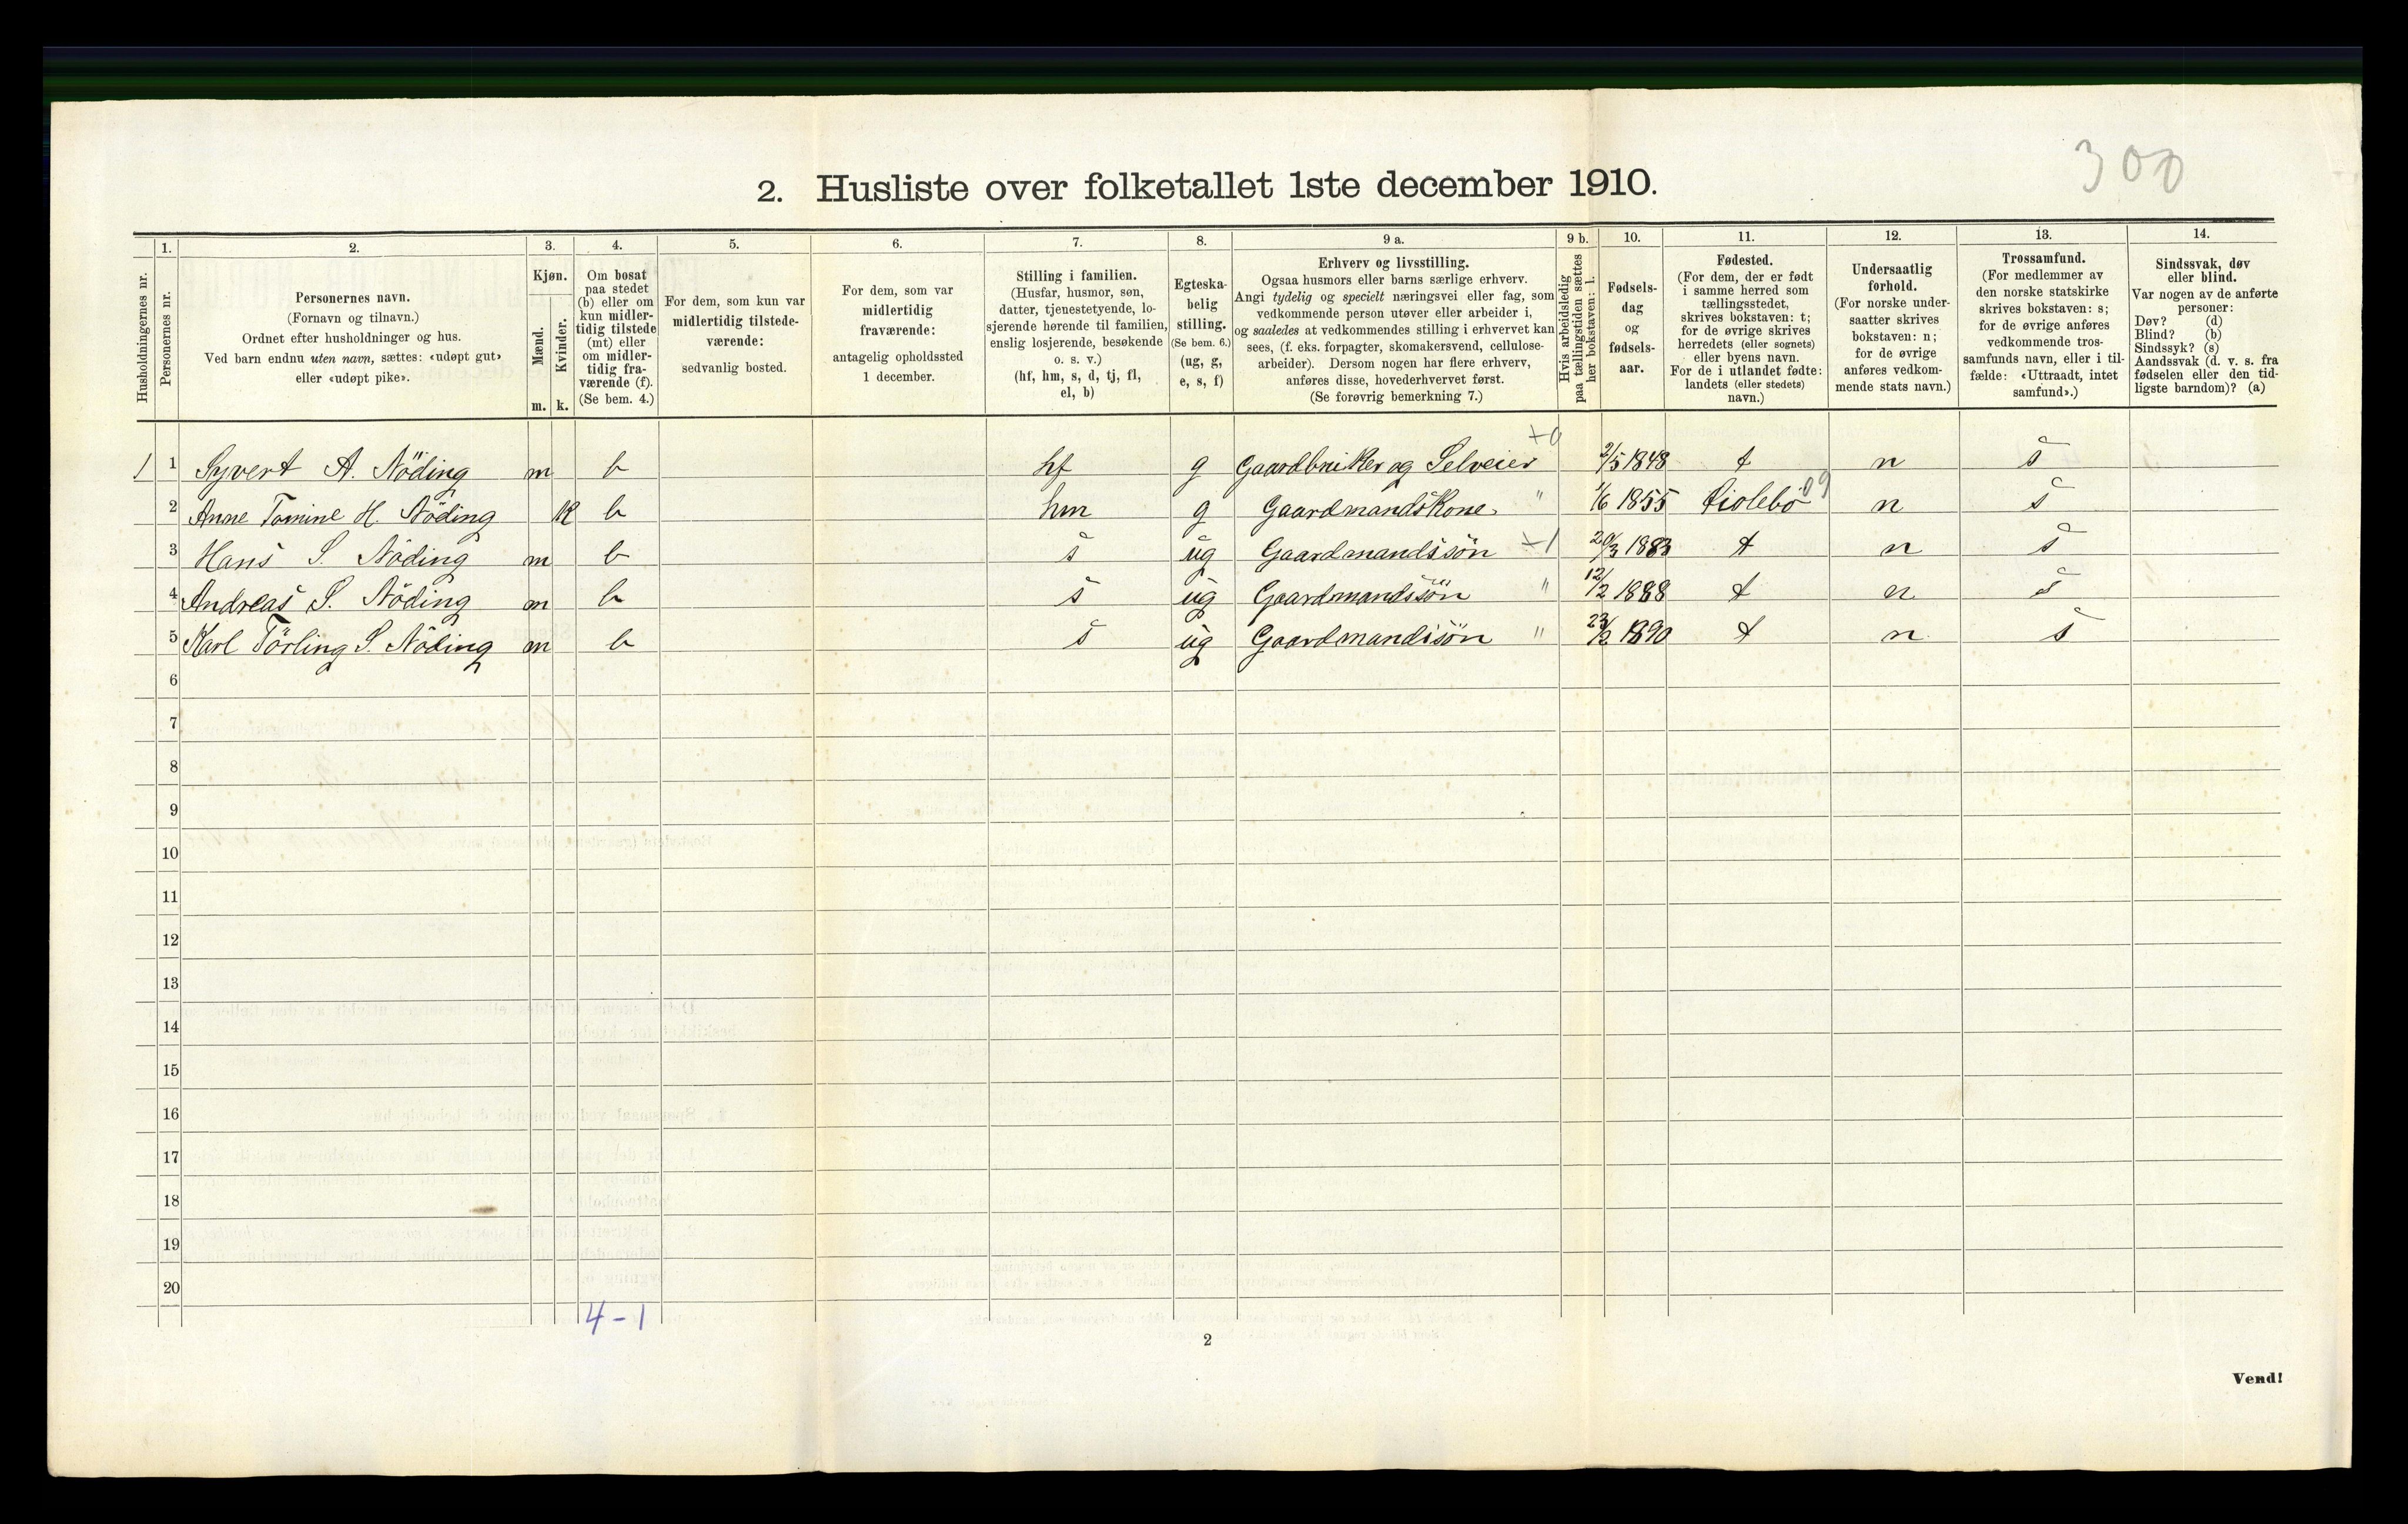 300
2. Husliste over folketallet 1ste december 1910.
Husholdningernes nr.
1.
Personernes nr.
2.
Personernes navn.
(Fornavn og tilnavn.)
Ordnet efter husholdninger og hus.
Ved barn endnu uten navn, sættes: «udøpt gut»
eller «udøpt pike».
3.
Kjøn.
Mænd.
Kvinder.
m. k.
4.
Om bosat
paa stedet
(b) eller om
kun midler-
tidig tilstede
(mt) eller
om midler-
tidig fra-
værende (f).
(Se bem. 4.)
5.
For dem, som kun var
midlertidig tilstede-
værende:
sedvanlig bosted.
6.
For dem, som var
midlertidig
fraværende:
antagelig opholdssted
1 december.
7.
Stilling i familien.
(Husfar, husmor, søn,
datter, tjenestetyende, lo-
sjerende hørende til familien,
enslig losjerende, besøkende
o. s. v.)
(hf, hm, s, d, tj, fl,
el, b)
8.
Egteska-
belig
stilling.
(Se bem. 6.)
(ug, g,
e, s, f)
9 a.
Erhverv og livsstilling.
Ogsaa husmors eller barns særlige erhverv.
Angi tydelig og specielt næringsvei eller fag, som
vedkommende person utøver eller arbeider i,
og saaledes at vedkommendes stilling i erhvervet kan
sees, (f. eks. forpagter, skomakersvend, cellulose-
arbeider). Dersom nogen har flere erhverv,
anføres disse, hovederhvervet først.
(Se forøvrig bemerkning 7.)
9 b.
Hvis arbeidsledig
paa tællingstiden sættes
her bokstaven: l.
10.
Fødsels-
dag
og
fødsels-
aar.
11.
Fødested.
(For dem, der er født
i samme herred som
tællingsstedet,
skrives bokstaven: t;
for de øvrige skrives
herredets (eller sognets)
eller byens navn.
For de i utlandet fødte:
landets (eller stedets)
navn.)
12.
Undersaatlig
forhold.
(For norske under-
saatter skrives
bokstaven: n;
for de øvrige
anføres vedkom-
mende stats navn.)
13.
Trossamfund.
(For medlemmer av
den norske statskirke
skrives bokstaven: s;
for de øvrige anføres
vedkommende tros-
samfunds navn, eller i til-
fælde: «Uttraadt, intet
samfund».)
14.
Sindssvak, døv
eller blind.
Var nogen av de anførte
personer:
Døv? (d)
Blind? (b)
Sindssyk? (s)
Aandssvak (d. v. s. fra
fødselen eller den tid-
ligste barndom)? (a)
1 1 Syvert A. Nöding m b hf g Gaardbruker og Selveier +0 2/5 1848 t n s
2 Anne Tomine H. Nöding k b hm g Gaardmandskone " 1/6 1855 Øiolebö 09 n s
3 Hans S. Nöding m b s ug Gaardmandssön +1 20/3 1883 t n s
4 Andreas S. Nöding m b s ug Gaardmandssön " 12/2 1888 t n s
5 Karl Törling S. Nöding m b s ug Gaardmandssön " 23/2 1890 t n s
6
7
8
9
10
11
12
13
14
15
16
17
18
19
20
4-1
2
Vend!